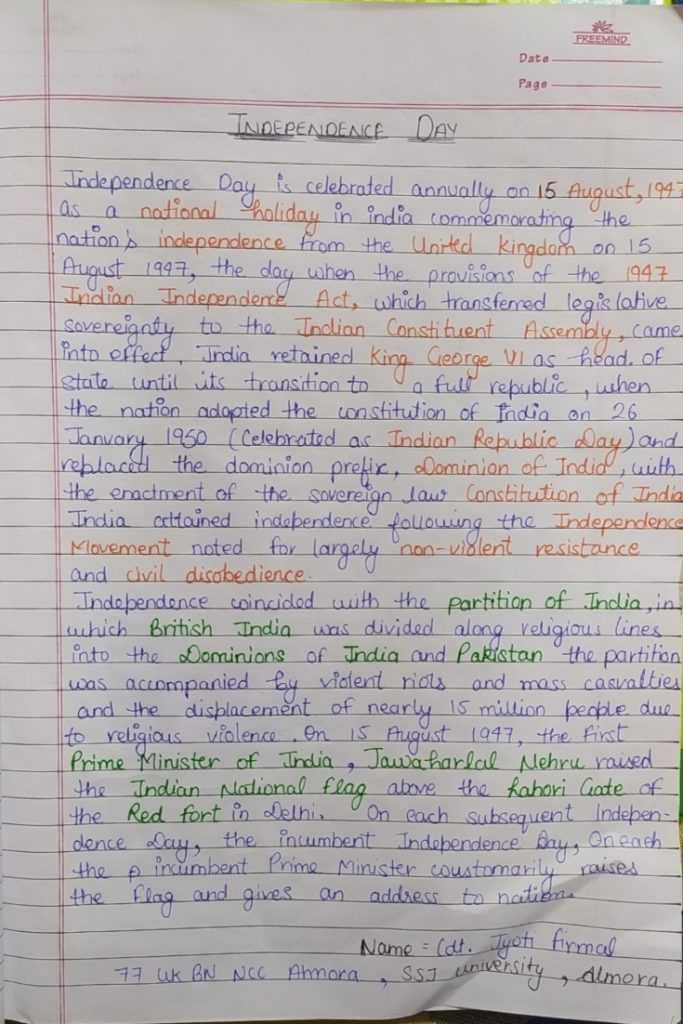 FREEMIND
Date
Page
INDEPENDENCE DAY
Independence Day is celebrated annually on 15 August, 1947
as a national holiday in india commemorating the
nation's independence from the United kingdom on 15
August 1947, the day when the provisions of the 1947
Indian Independence Act, which transferred legislative
sovereignty to the Indian Constituent Assembly, came
into effect. India retained King George VI as head of
state until its transition to a full republic, when
the nation adopted the constitution of India on 26
January 1950 (Celebrated as Indian Republic Day) and
replaced the dominion prefix, Dominion of India, with
the enactment of the sovereign law Constitution of India
India attained independence following the Independence
Movement noted for largely non-violent resistance
and civil disobedience.
Independence coincided with the partition of India, in
which British India was divided along religious lines
into the Dominions of India and Pakistan the partition
was accompanied by violent riots and mass casualties
and the displacement of nearly 15 million people due
to religious violence. On 15 August 1947, the first
Prime Minister of India, Jawaharlal Nehru raised
the Indian National flag above the Lahori Gate of
the Red fort in Delhi. On each subsequent Indepen-
dence Day, the incumbent Independence Day, On each
the p incumbent Prime Minister coustomarily raises
the flag and gives an address to nation.
Name = Cdt. Jyoti firmal
77 UK BN NCC Almora, SSJ university, Almora.